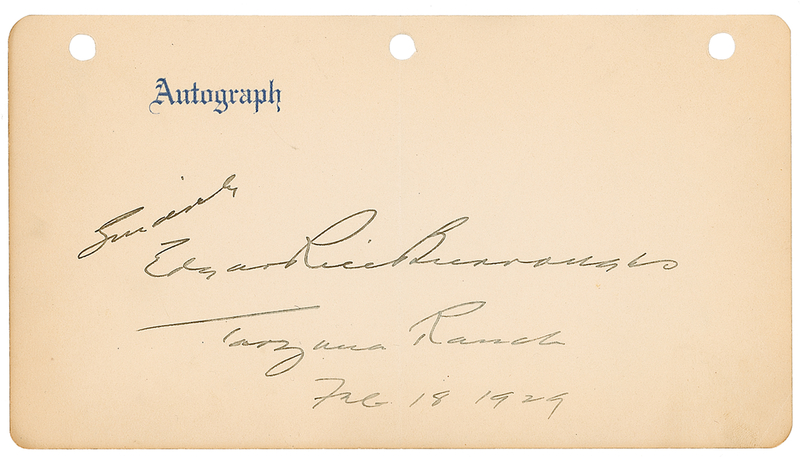 Autograph
Sincerely
Edgar Rice Burroughs
Tarzana Ranch
Feb 18 1929